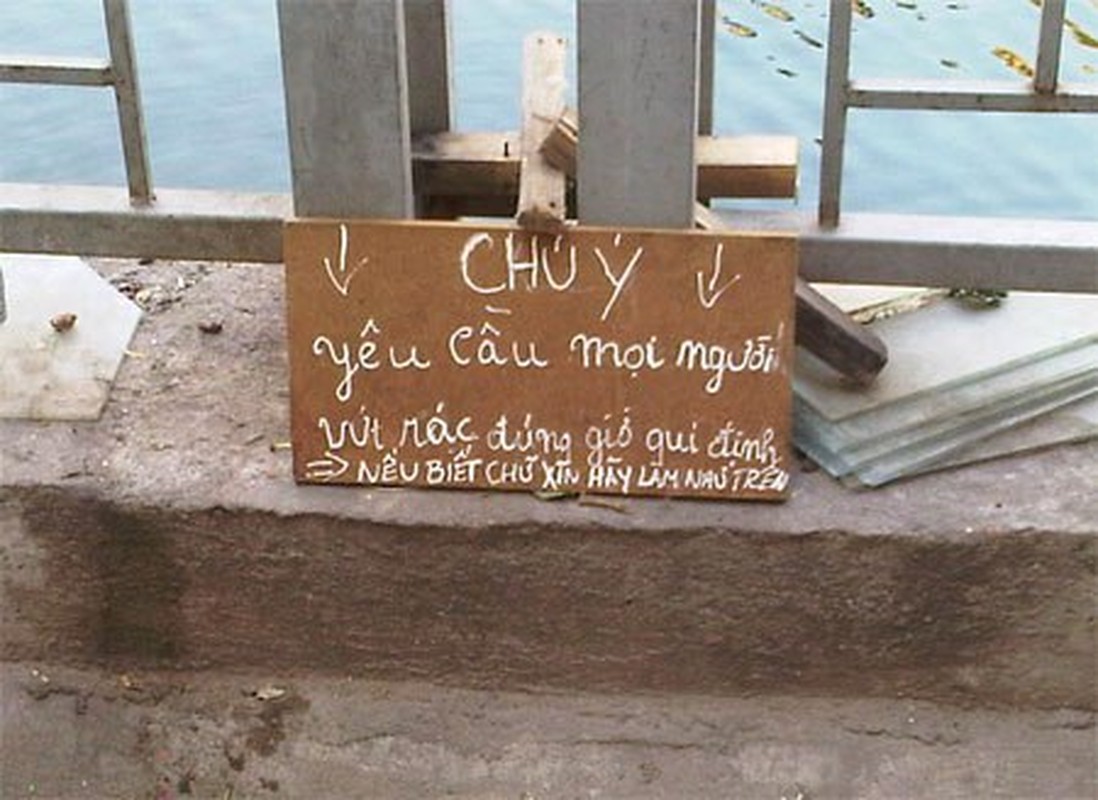 ↓ CHÚ Ý ↓
yêu cầu mọi người
vứt rác đúng giờ qui định
=> NẾU BIẾT CHỮ XIN HÃY LÀM NHƯ TRÊN